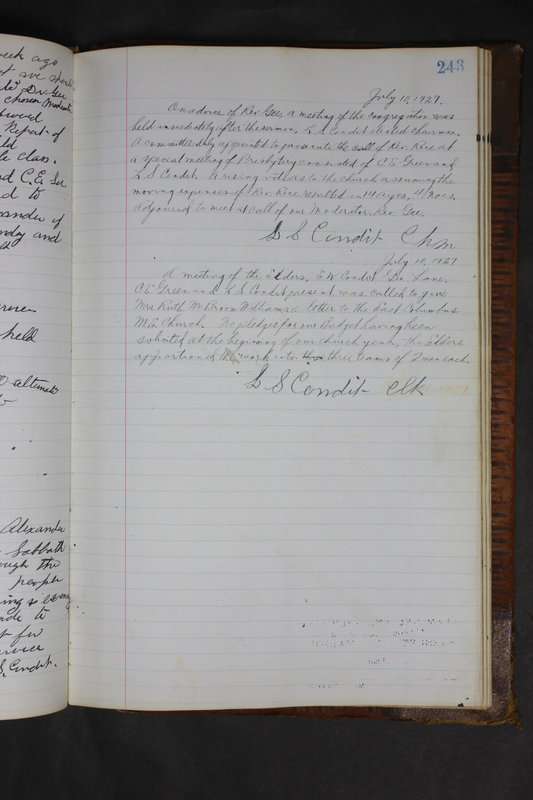 eek ago
t we should
to Dr. Gee
chosen Moderator
Report of
ld
le class.
nd C.E. Soc
d to
xander if
nday and
held
alternate
Alexander
Sabbath
ough the
people
ing & every
nde to
t for
S. Condit.
243
July 10, 1927.
On advice of Rev. Gee, a meeting of the congregation was
held immediately after the sermon. L S Condit elected chairman.
A committee duly appointed to prosecute the call of Rev. Rice at
a special meeting of Presbytery consisted of C. E. Green and
L S Condit. A rising vote as to the church assuming the
moving expenses of Rev. Rice resulted in 14 ayes, 4 noes.
Adjourned to meet at call of our Moderator Rev. Gee.
L S Condit Chm
July 10, 1927
A meeting of the elders, E W Condit Geo. Lane,
C E Green and L S Condit present was called to give
Mrs Ruth McBroom Williams a letter to the East Columbus
M.E. Church. No pledges for our Budget having been
solicited at the beginning of our church year, the elders
apportioned the work into three teams of 2 men each.
L S Condit Clk